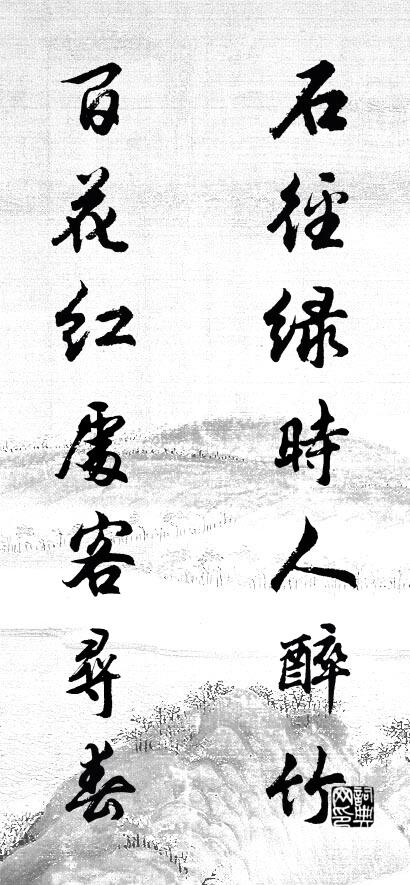 石徑綠時人醉竹
百花紅處客尋春
詞典網印